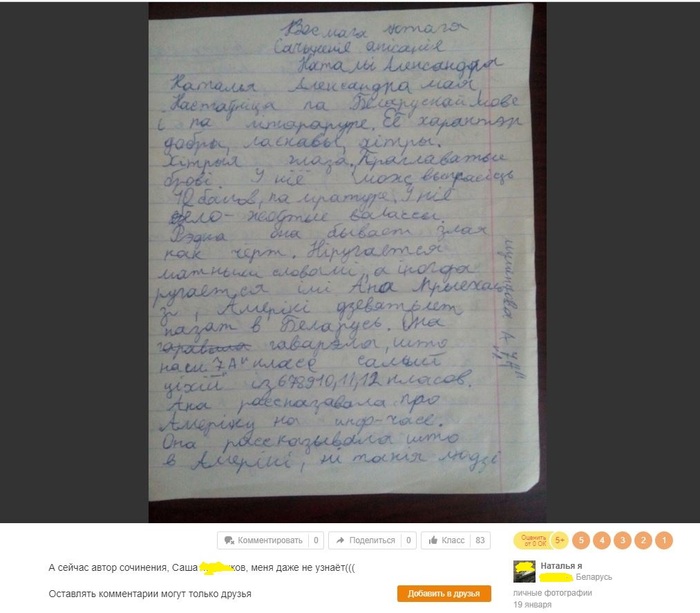 Восмага лютага
Сачыненне апісанія
Наталлі Александры
Наталья Александра мая
Настаўніца па Беларускай Мове
і па літаратуре. Её характэр
добры, ласкавы, хітры.
Хітрыя глаза.
брові. У неё можэ
10 балов, па літратуре У неё
бело-жоўтые валассы.
Рэдка она бывает злая
как черт. Ніругается
матными словамі, а іногда
ругается імі Ана прыехала
з, Амерікі дзевать лет
назат в Беларусь. Она
гаварыла гаварыла, што
наш 7 А" класс самый
ціхій із 678910,11,12 класов.
Ана рассказавала про
Амеріку на инф-часе.
Она рассказывала што
в Амерікі, ні такія людзі
Комментировать 0
Поделиться 0
Класс 83
Оценить от 5 ОК 5+ 5 4 3 2 1
А сейчас автор сочинения, Саша ков, меня даже не узнаёт(((
Оставлять комментарии могут только друзья
Добавить в друзья
Наталья я
Беларусь
личные фотографии
19 января